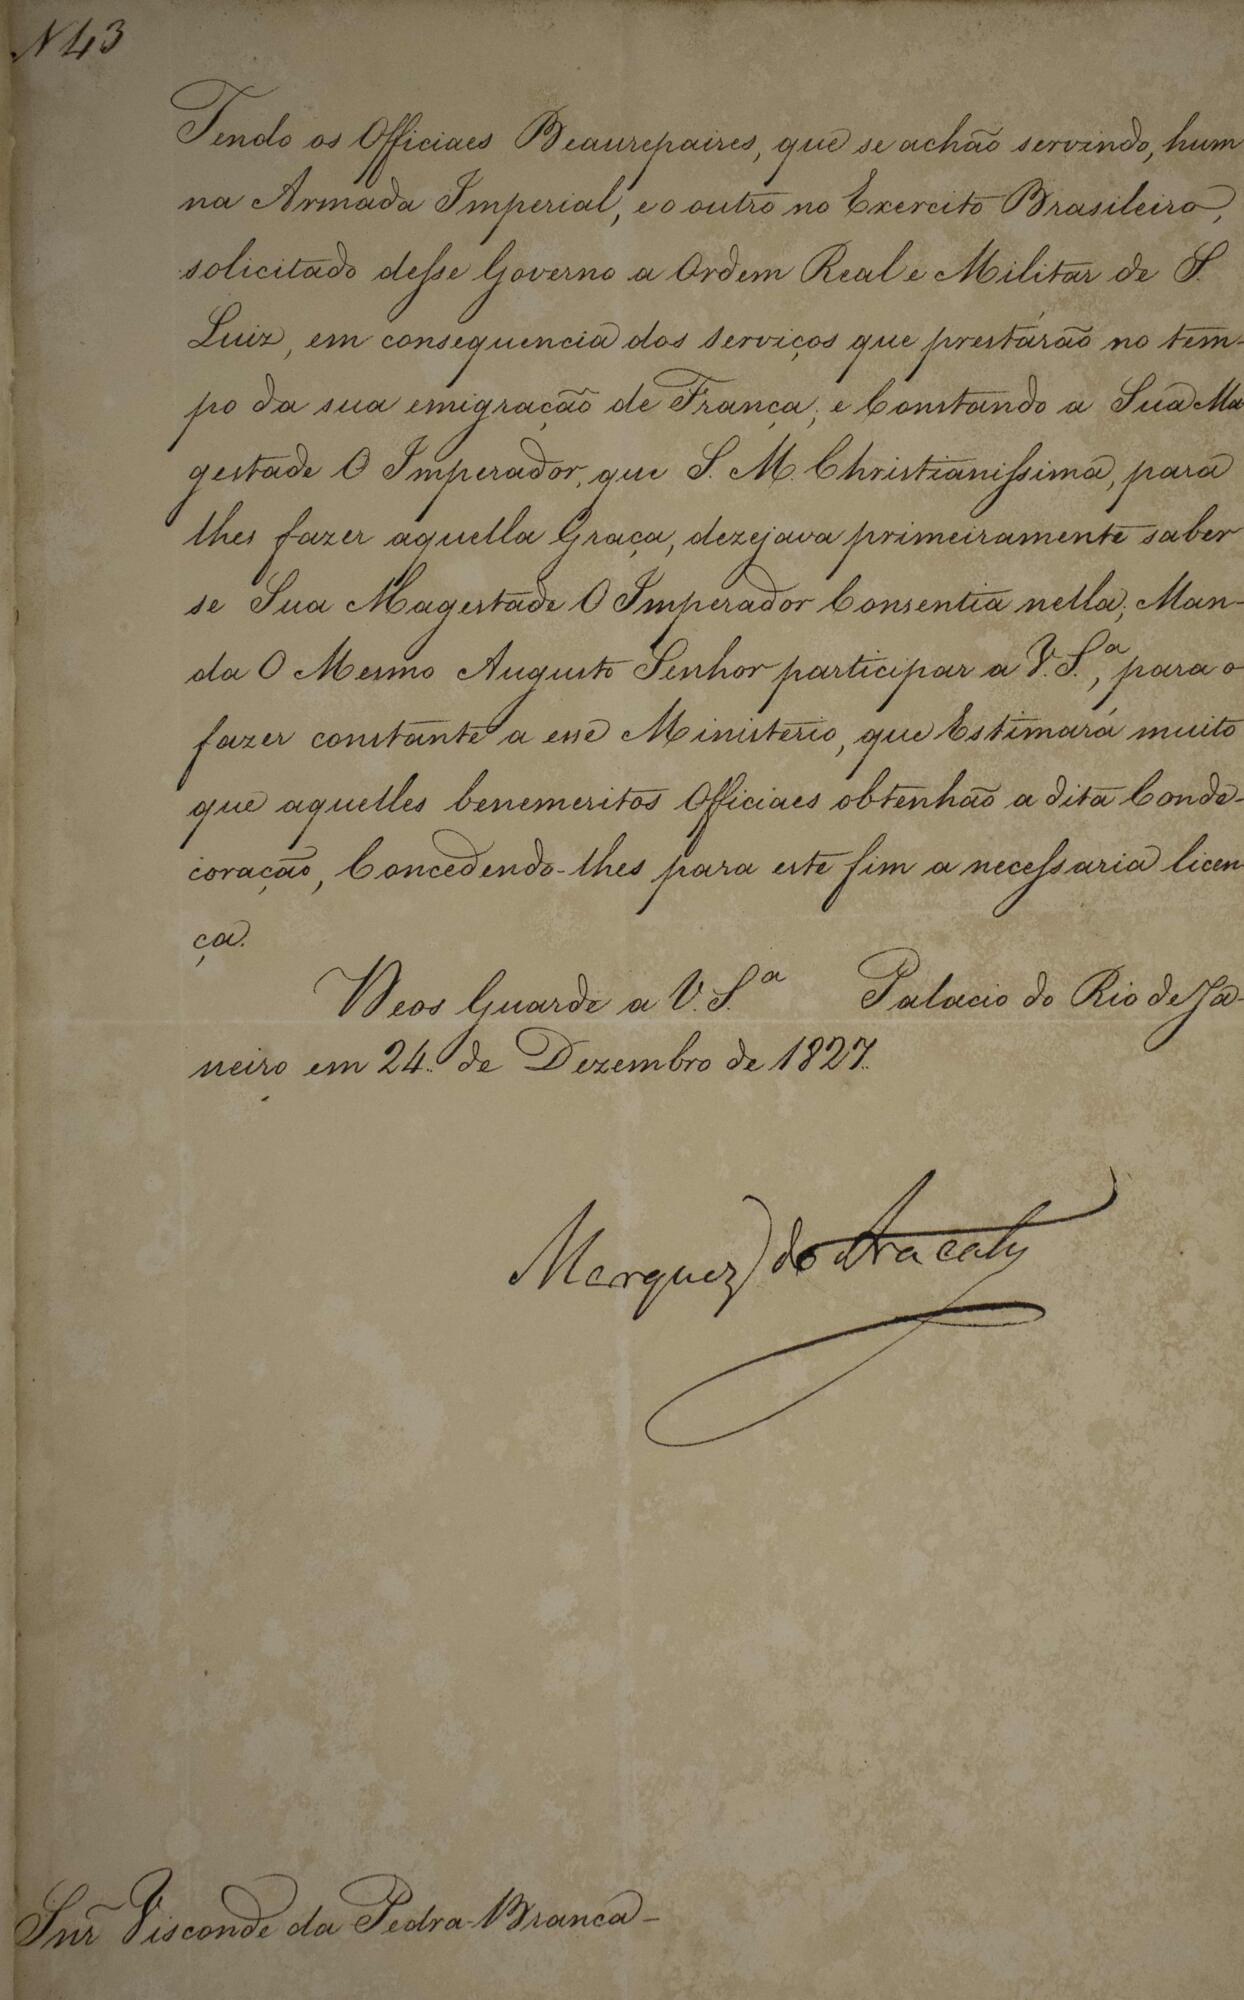 N 43
Tendo os Officiaes Beaurepaires, que se achão servindo, hum
na Armada Imperial, e o outro no Exercito Brasileiro,
solicitado desse Governo a Ordem Real e Militar de S.
Luiz, em consequencia dos serviços que prestárão no tem-
po da sua emigração de França; e Constando a Sua Ma
gestade O Imperador, que S. M. Christianissima, para
lhes fazer aquella Graça, dezejava primeiramente saber
se Sua Magestade O Imperador Consentia nella; Man-
da O Mesmo Augusto Senhor participar a V. S.ª, para o
fazer constante a esse Ministerio, que Estimará muito
que aquelles benemeritos Officiaes obtenhão a dita Conde-
coração, Concedendo-lhes para este fim a necessaria licen
ça.
Deos Guarde a V. S.ª Palacio do Rio de Ja-
neiro em 24. de Dezembro de 1827.
Marquez do Aracaty
Snr Visconde da Pedra-Branca-